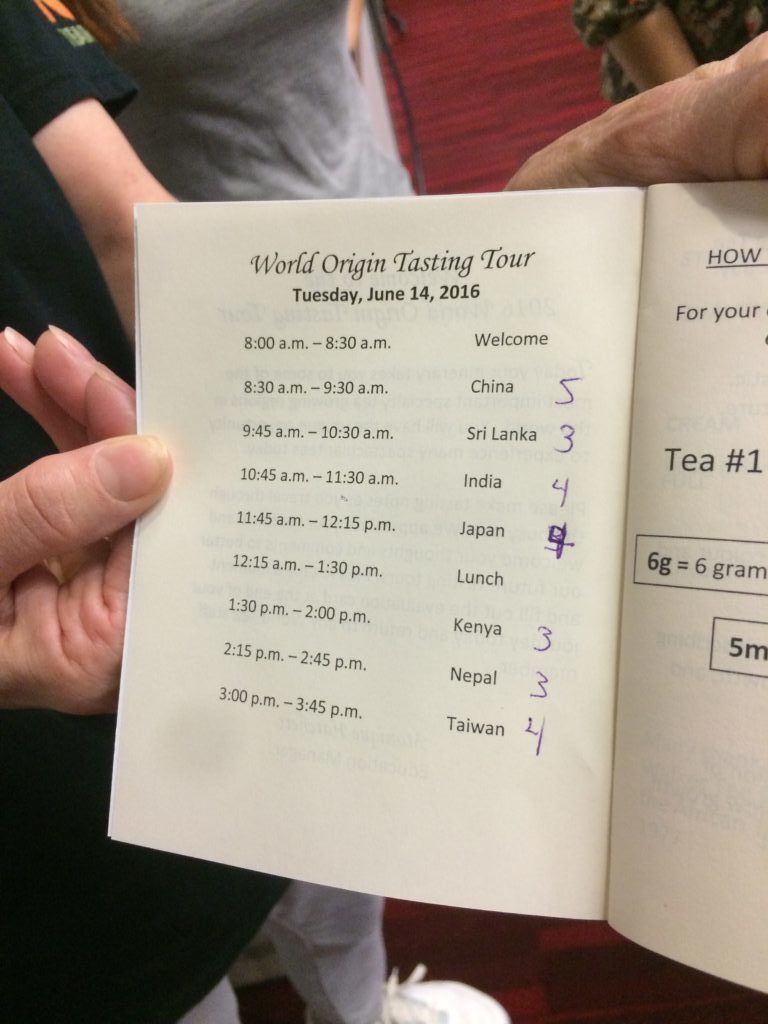 World Origin Tasting Tour
Tuesday, June 14, 2016
8:00 a.m. – 8:30 a.m. Welcome
8:30 a.m. – 9:30 a.m. China 5
9:45 a.m. – 10:30 a.m. Sri Lanka 3
10:45 a.m. – 11:30 a.m. India 4
11:45 a.m. – 12:15 p.m. Japan 4
12:15 a.m. – 1:30 p.m. Lunch
1:30 p.m. – 2:00 p.m. Kenya 3
2:15 p.m. – 2:45 p.m. Nepal 3
3:00 p.m. – 3:45 p.m. Taiwan 4
HOW
For your
Tea #1
6g = 6 gram
5m